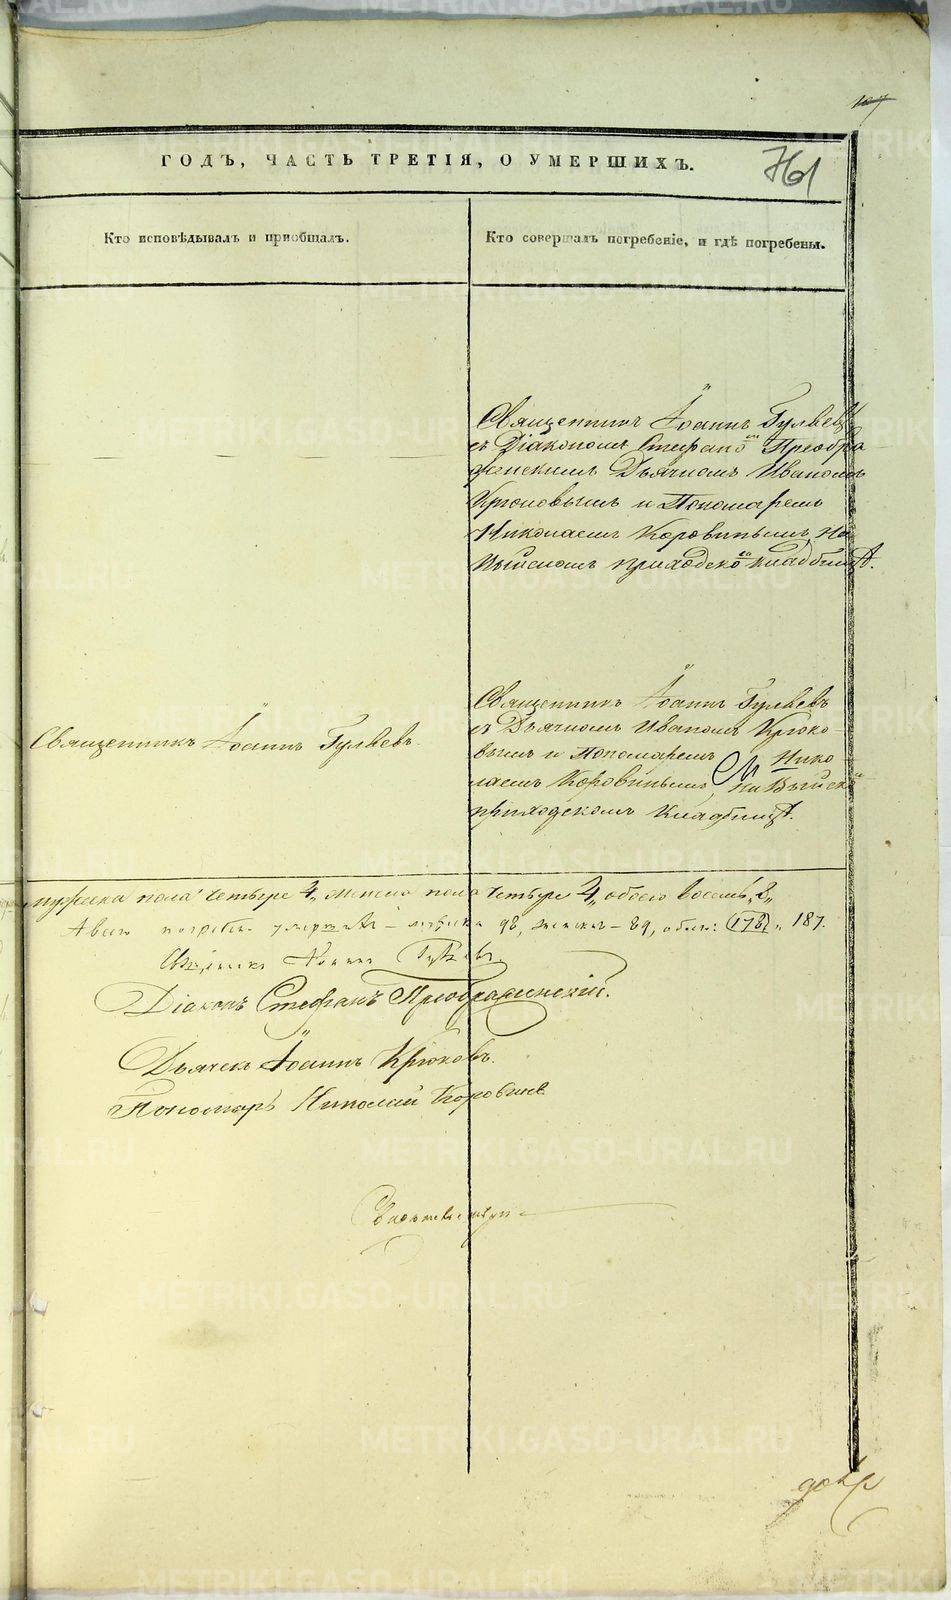 ГОДЪ, ЧАСТЬ ТРЕТІЯ, О УМЕРШИХЪ.
Кто исповѣдывалъ и пріобщалъ.
Кто совершалъ погребеніе, и гдѣ погребены.
Священникъ Іоаннъ Гуляевъ
съ Діакономъ Стефаномъ Преобра
женскимъ Дьячкомъ Иваномъ
Крюковымъ и Пономаремъ
Николаемъ Коровинымъ, На
Выйскомъ приходскомъ кладбищѣ.
Священникъ Іоаннъ Гуляевъ.
Священникъ Іоаннъ Гуляевъ
съ Дьячкомъ Иваномъ Крюко-
вымъ и Пономаремъ Нико
лаемъ Коровинымъ, На Выйскомъ
приходскомъ Кладбищѣ.
мужеска пола четыре 4, женска пола четыре 4, обоего восемь, 8,
98, женска - 89, обоего: 178, 187.
Священникъ Іоаннъ Гуляевъ.
Діаконъ Стефанъ Преображенскій.
Дьячекъ Іоаннъ Крюковъ.
Пономарь Николай Коровинъ
METRIKI.GASO-URAL.RU